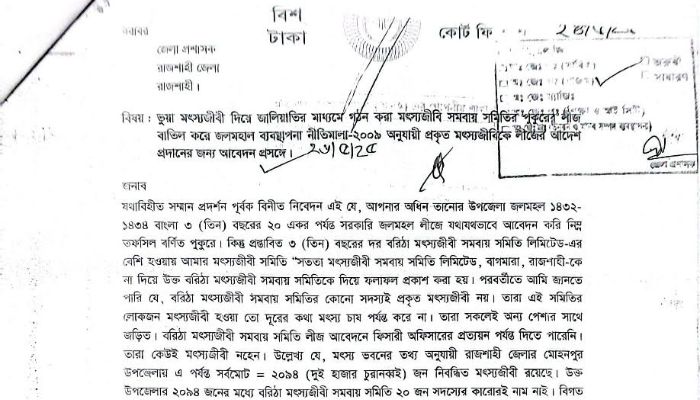 বরাবর
বিশ
টাকা
কোর্ট ফি
জেলা প্রশাসক
রাজশাহী জেলা
রাজশাহী।
জরুরী
সাধারণ
বিষয় : ভুয়া মৎস্যজীবী দিয়ে জালিয়াতির মাধ্যমে গঠন করা মৎস্যজীবি সমবায় সমিতির পুকুরের লীজ
বাতিল করে জলমহাল ব্যবস্থাপনা নীতিমালা-২০০৯ অনুযায়ী প্রকৃত মৎস্যজীবিকে লীজের আদেশ
প্রদানের জন্য আবেদন প্রসঙ্গে।
জেলা প্রশাসক
জনাব
যথাবিহীত সম্মান প্রদর্শন পূর্বক বিনীত নিবেদন এই যে, আপনার অধিন তানোর উপজেলা জলমহল ১৪৩২-
১৪৩৪ বাংলা ৩ (তিন) বছরের ২০ একর পর্যন্ত সরকারি জলমহল লীজে যথাযথভাবে আবেদন করি নিম্ন
তফসিল বর্ণিত পুকুরে। কিন্তু প্রস্তাবিত ৩ (তিন) বছরের দর বরিঠা মৎস্যজীবী সমবায় সমিতি লিমিটেড-এর
বেশি হওয়ায় আমার মৎস্যজীবী সমিতি "সততা মৎস্যজীবী সমবায় সমিতি লিমিটেড, বাগমারা, রাজশাহী-কে
না দিয়ে উক্ত বরিঠা মৎস্যজীবী সমবায় সমিতিকে দিয়ে ফলাফল প্রকাশ করা হয়। পরবর্তীতে আমি জানতে
পারি যে, বরিঠা মৎস্যজীবী সমবায় সমিতির কোনো সদস্যই প্রকৃত মৎস্যজীবী নয়। তারা এই সমিতির
লোকজন মৎস্যজীবী হওয়া তো দূরের কথা মৎস্য চাষ পর্যন্ত করে না। তারা সকলেই অন্য পেশার সাথে
জড়িত। বরিঠা মৎস্যজীবী সমবায় সমিতি লীজ আবেদনে ফিসারী অফিসারের প্রত্যয়ন পর্যন্ত দিতে পারেনি।
তারা কেউই মৎস্যজীবী নহেন। উল্লেখ্য যে, মৎস্য ভবনের তথ্য অনুযায়ী রাজশাহী জেলার মোহনপুর
উপজেলায় এ পর্যন্ত সর্বমোট = ২০৯৪ (দুই হাজার চুরানব্বই) জন নিবন্ধিত মৎস্যজীবী রয়েছে। উক্ত
উপজেলার ২০৯৪ জনের মধ্যে বরিঠা মৎস্যজীবী সমবায় সমিতি ২০ জন সদস্যের কারোরই নাম নাই। বিগত